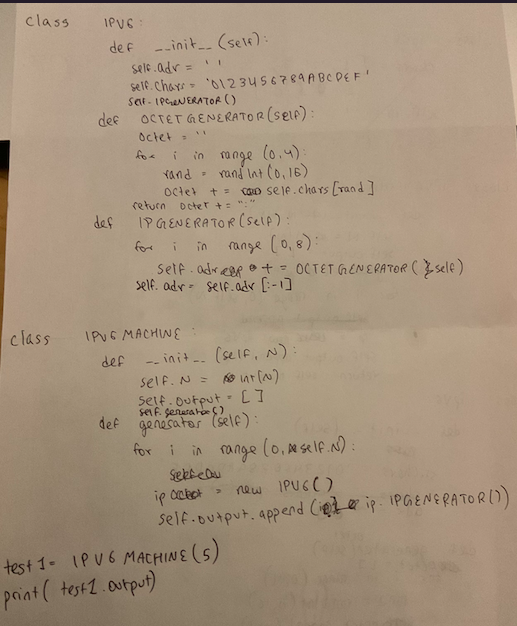 class IPV6:
def __init__(self):
self.adr = ''
self.chars = '0123456789ABCDEF'
self.IPGENERATOR()
def OCTETGENERATOR(self):
Octet = ''
for i in range (0,4):
rand = randInt(0,16)
Octet += self.chars[rand]
return Octet += ":"
def IPGENERATOR(self):
for i in range (0,8):
self.adr += OCTETGENERATOR(self)
self.adr = self.adr[:-1]
class IPV6 MACHINE:
def __init__(self, N):
self.N = int(N)
self.output = []
self.generator()
def generator (self):
for i in range (0, self.N):
ip = new IPV6()
self.output.append(ip.IPGENERATOR())
test1 = IPV6 MACHINE(5)
print(test1.output)